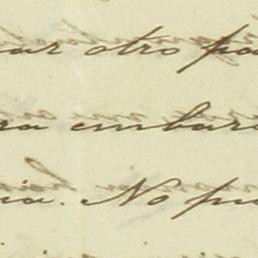 ar otro pa
ra embar
ia. No pu